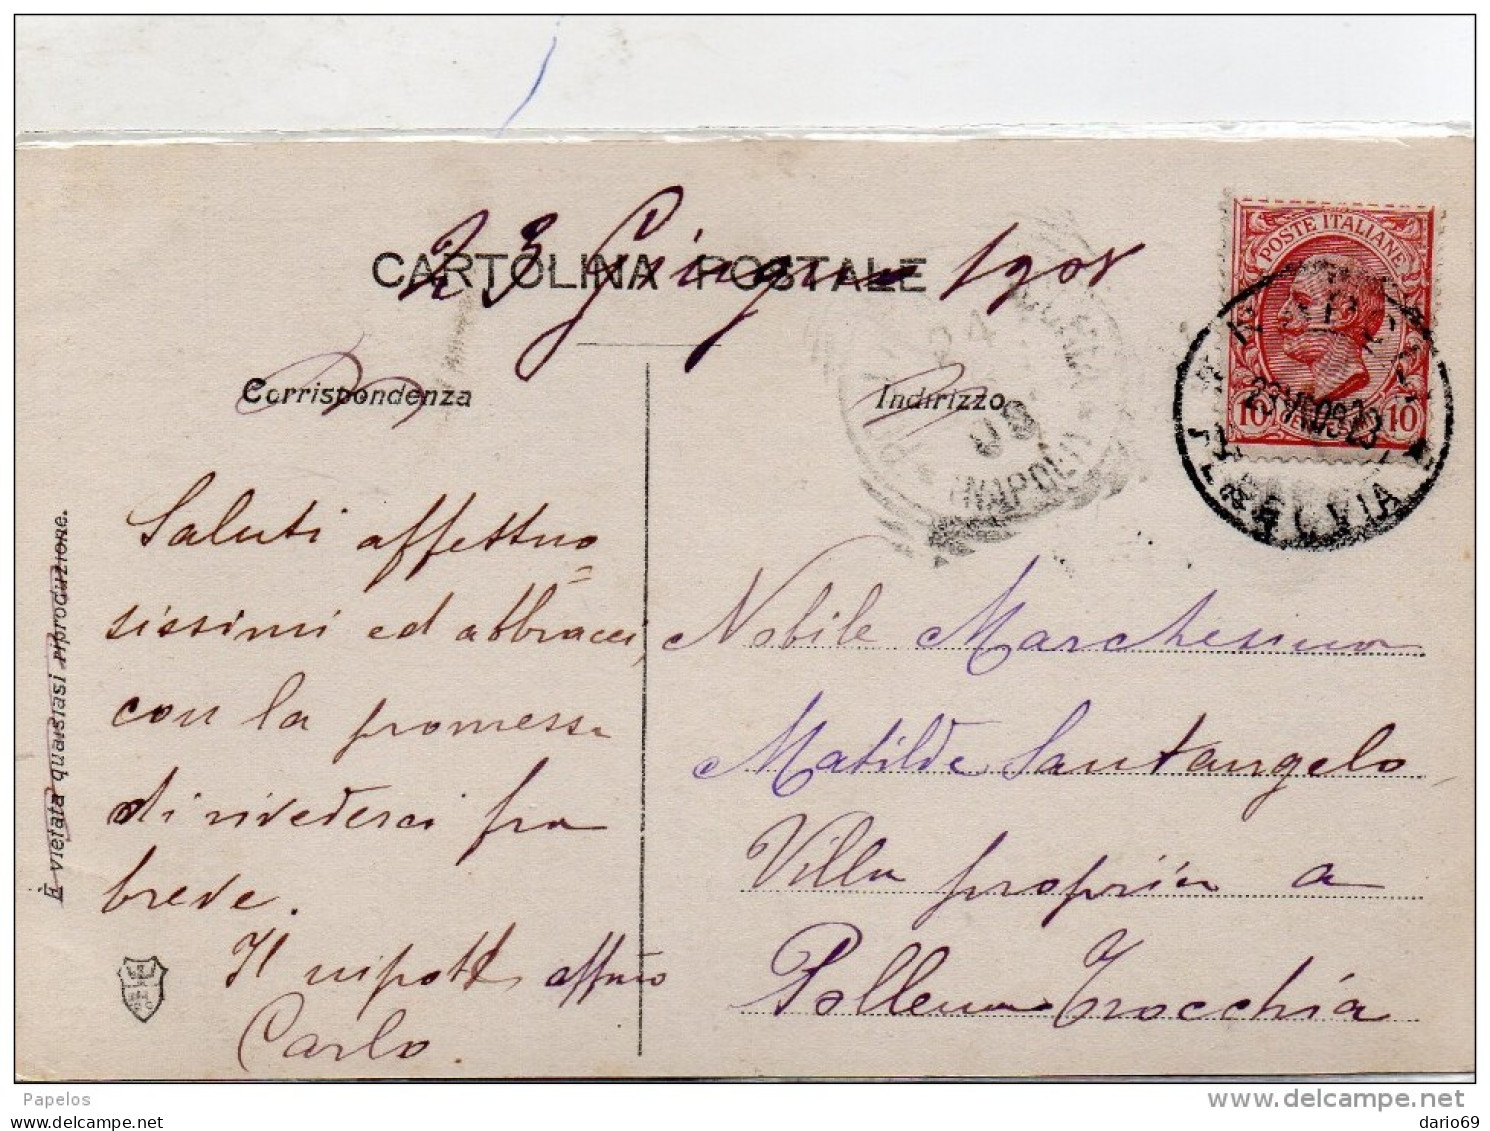 CARTOLINA POSTALE
23 Giugno 1908
Corrispondenza
Indirizzo
POSTE ITALIANE
10 10
24
08
(NAPOLI)
È vietata qualsiasi riproduzione.
Saluti affettuo=
sissimi ed abbracci,
con la promessa
di rivederci fra
breve.
Il nipote affmo
Carlo.
Nobile Marchesina
Matilde Santangelo
Villa propria a
Pollena Trocchia
Papelos
www.delcampe.net
dario69